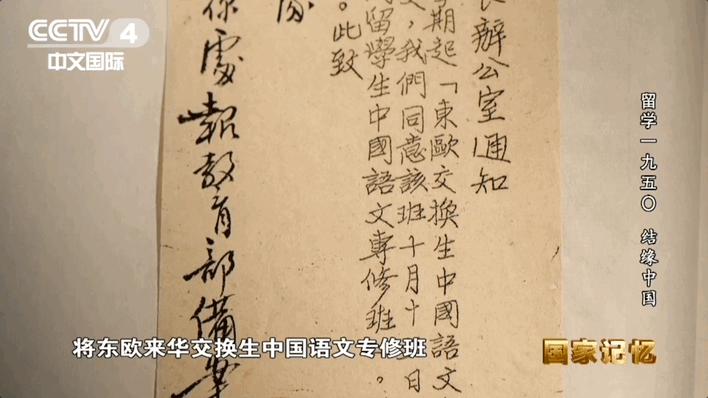 CCTV 4
中文国际
長辦公室通知
期起「東歐交換生中國語文
,我們同意該班十月十日
留學生中國語文專修班」。
。此致
處
處報教育部備案
留学一九五〇 结缘中国
将东欧来华交换生中国语文专修班
国家记忆